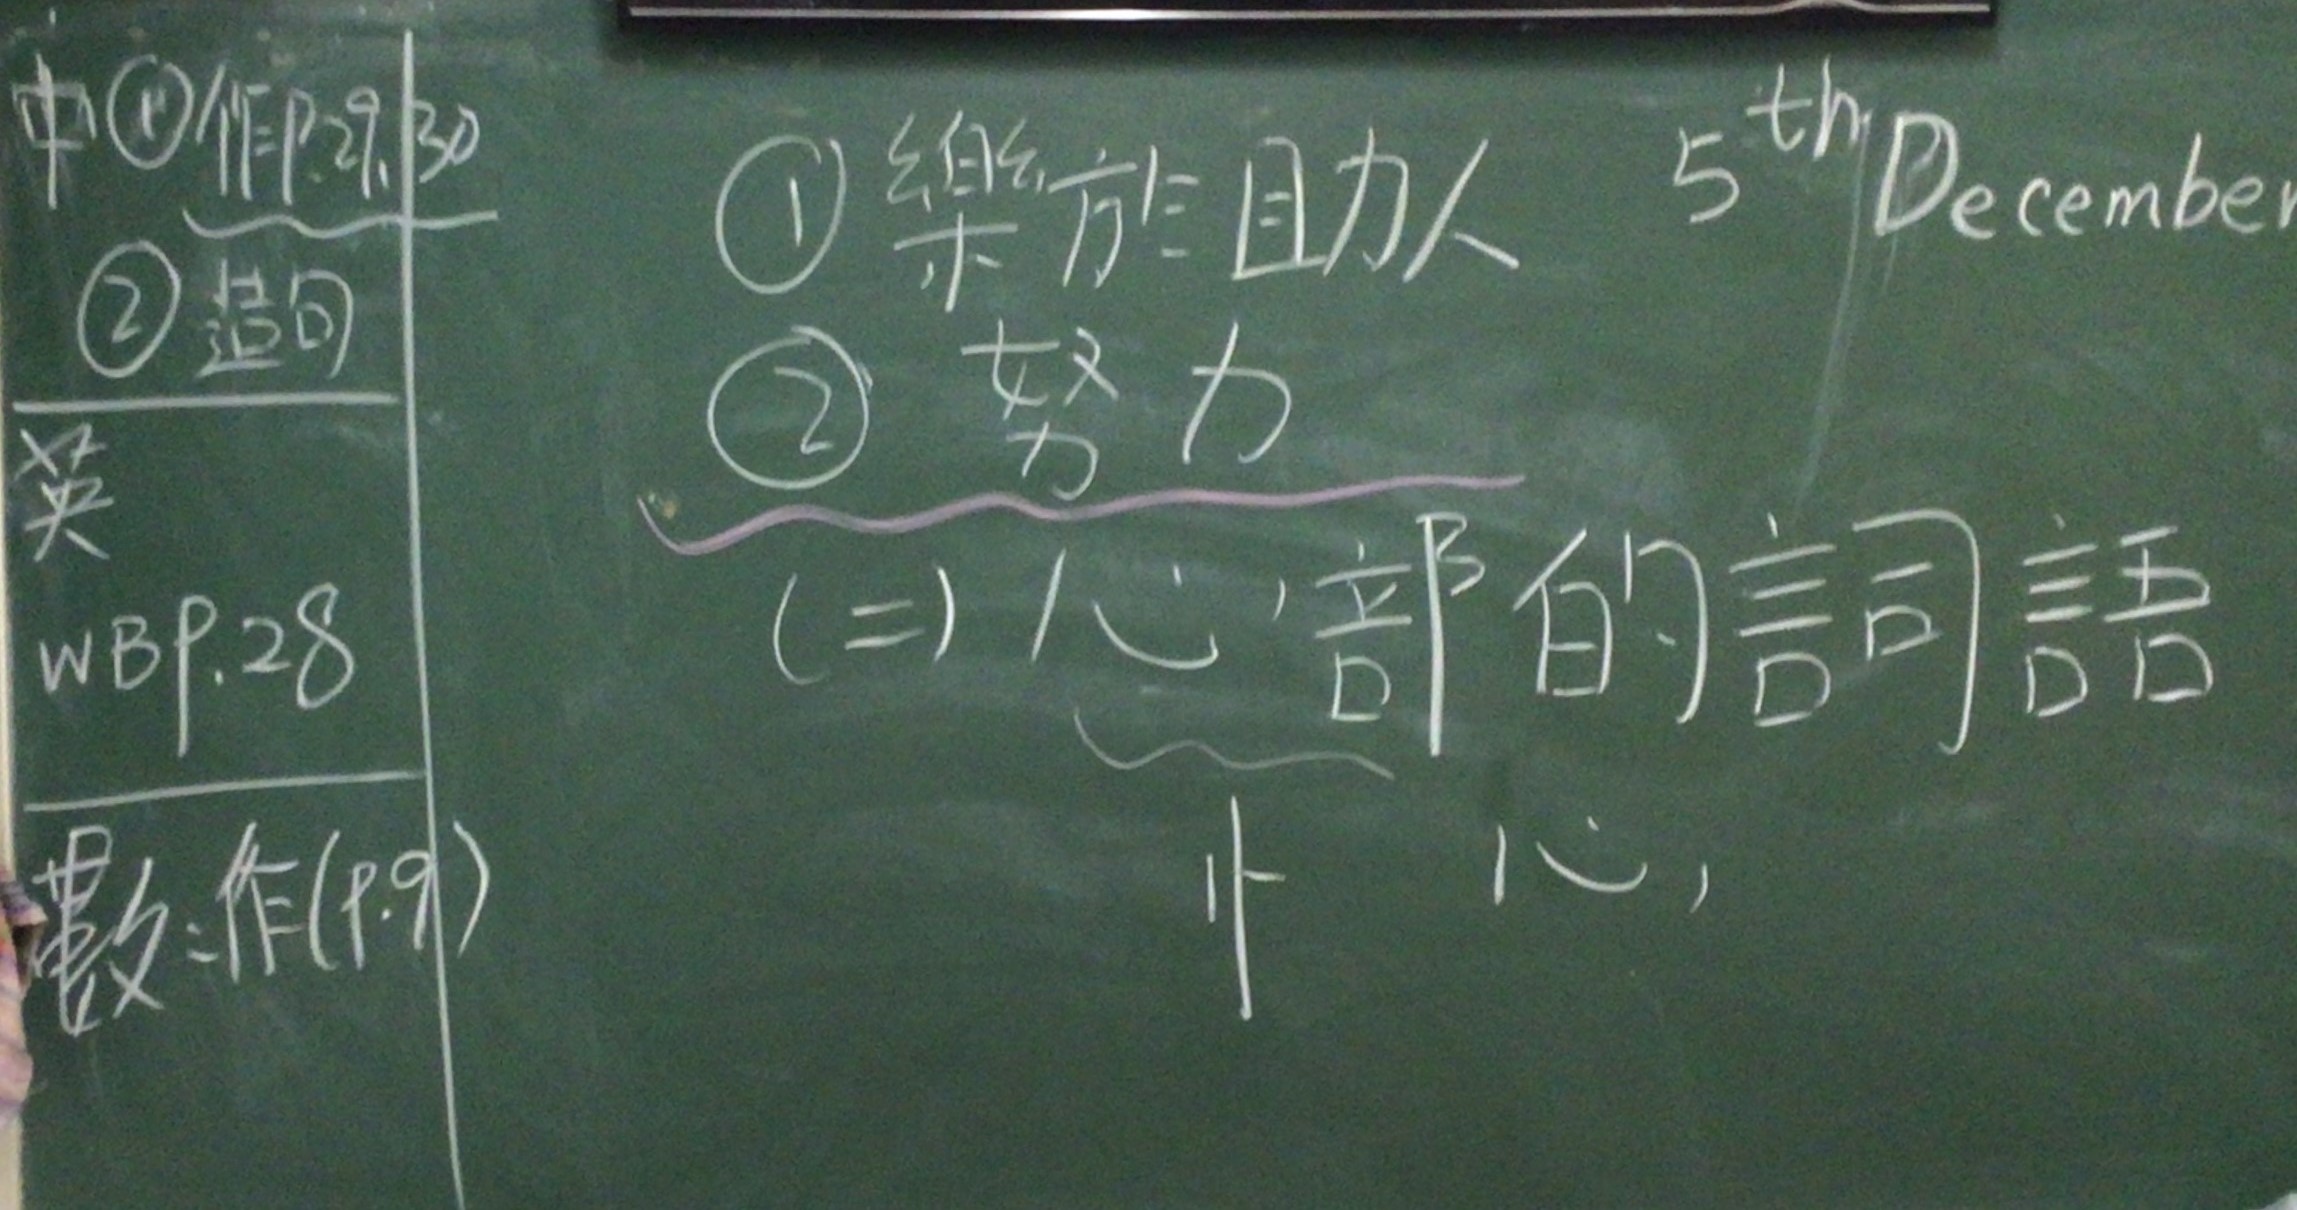 中①作P.29,30
②造句
英
WBP.28
數:作(P.9)
①樂於助人
②努力
5th December
(二)心部的詞語
忄 心